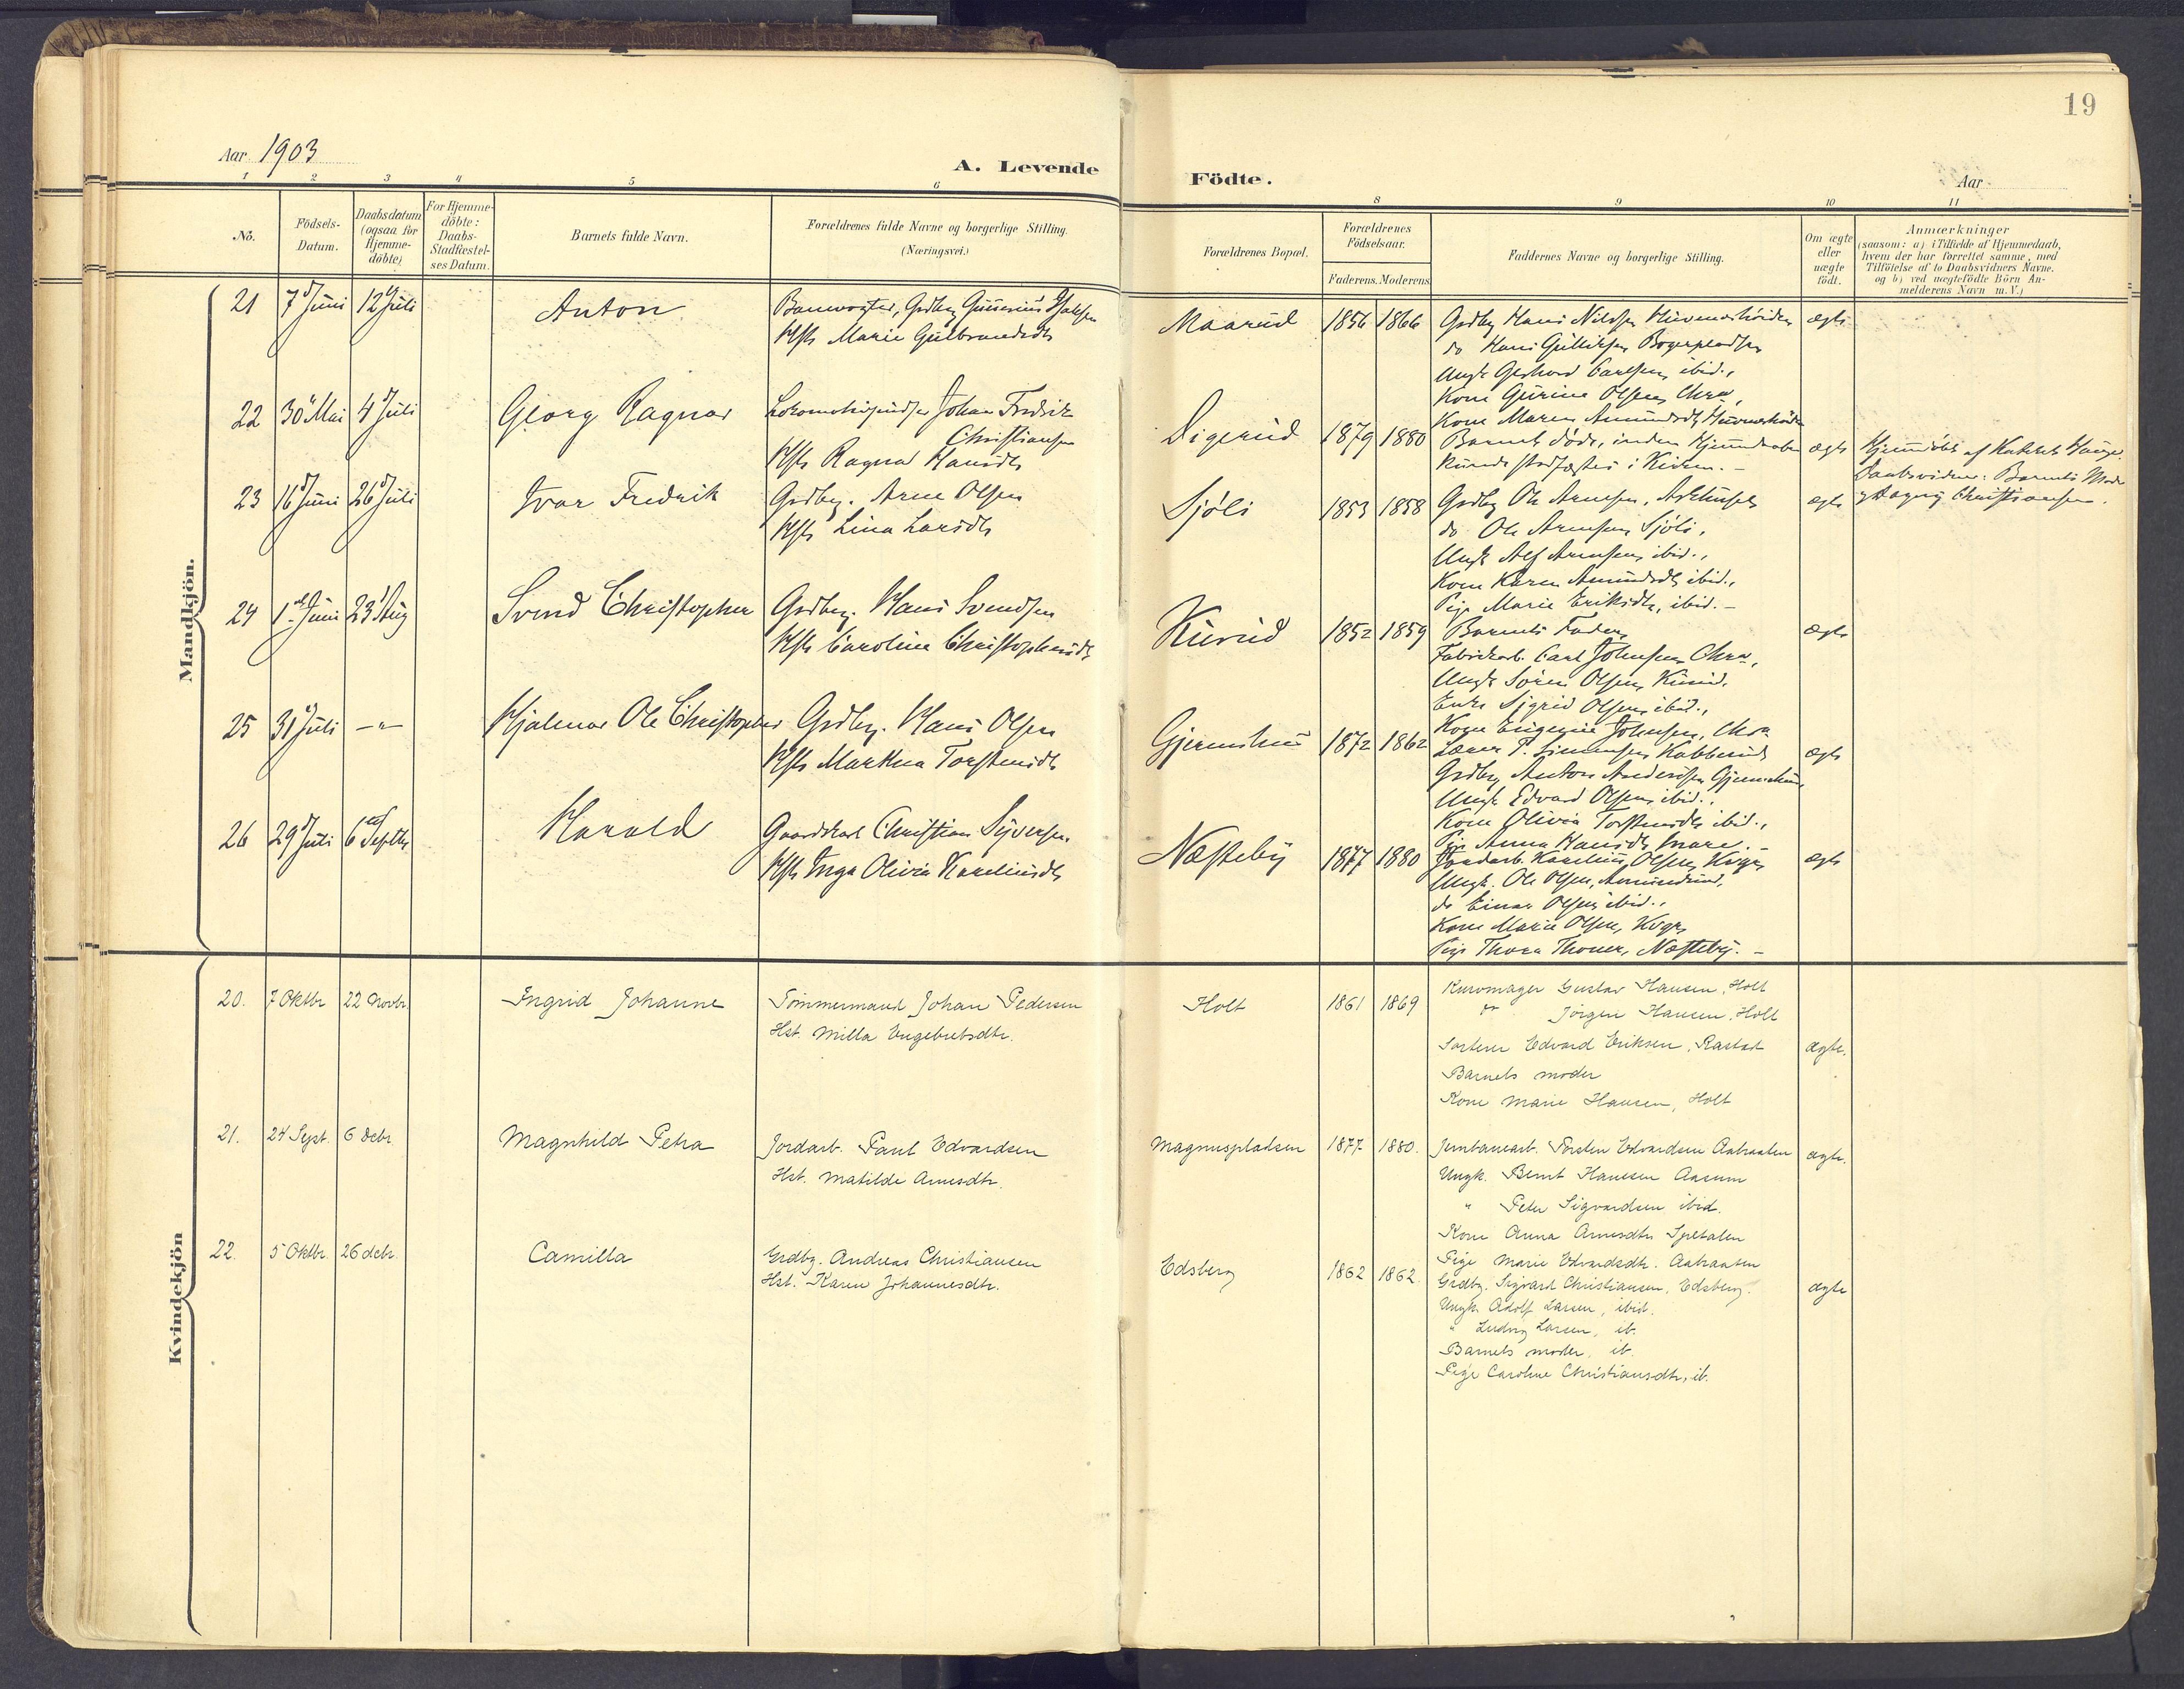 19
Aar 1903
A. Levende Födte.
Aar
1 2 3 4 5 6 8 9 10 11
No.
Födsels-Datum.
Daabsdatum (ogsaa for Hjemmedöbte)
For Hjemmedöbte: Daabs-Stadfæstelses Datum.
Barnets fulde Navn.
Forældrenes fulde Navne og borgerlige Stilling. (Næringsvei.)
Forældrenes Bopæl.
Forældrenes Födselsaar.
Faderens. Moderens.
Faddernes Navne og borgerlige Stilling.
Om ægte eller uægte födt.
Anmærkninger
(saasom: a) i Tilfælde af Hjemmedaab,
hvem der har forrettet samme, med
Tilföielse af to Daabsvidners Navne.
og b) ved uægtefödte Börn An-
melderens Navn m. V.)
Mandkjön.
21 7 Juni 12 Juli
Anton
Banevogter, Grdbg
Kfts Marie Gulbrandsdtr
Maarud 1856 1866
Grdbg Hans Nilsen
do Hans Gulliksen
Ungk Gerhard Carlsen ibid.,
Kone Gurine Olsen, Chra,
Kone Maren Amundsdtr
ægte
22 30 Mai 4 Juli
Georg Ragnar
Johan Fredrik
Christiansen
Kfts Ragna Hansdtr
Digerud 1879 1880
Barnet döde, inden Hjemmedaaben
kunde stadfæstes i Kirken. -
ægte
Hjemmedöbt af
Daabsvidner: Barnets Moder
og Dagny Christiansen.
23 16 Juni 26 Juli
Ivar Fredrik
Grdbg. Arne Olsen
Kfts Lina Larsdtr
Sjöli 1853 1858
Grdbg Ole Arnesen,
do Ole Arnesen Sjöli,
Ungk Alf Arnesen ibid.,
Kone Karen Amundsdtr ibid.,
Pige Marie Eriksdtr, ibid. -
ægte
24 1ste Juni 23 Aug
Svend Christopher
Grdbg. Hans Svendsen
Kfts Caroline Christophersdtr
Kurud 1852 1859
Barnets Fader,
Fabrikarb. Carl Johnsen, Chra,
Ungk Sören Olsen, Kurud,
Enke Sigrid Olsen, ibid.,
Kone Eugenie Johnsen, Chra
ægte
25 31 Juli -"-
Hjalmar Ole Christopher
Grdbg. Hans Olsen
Kfts Marthea Torstensdtr
Gjermshus 1872 1862
Lærer P. Simensen Kabberud
Grdbg Anton Andersen Gjermshus,
Ungk Edvard Olsen, ibid.,
Kone Olivia Torstensdtr ibid.,
Pige Anna Hansdtr
ægte
26 29 Juli 6 Septbr
Harald
Gaardskarl Christian Syversen
Kfts Inga Olivia Kareliusdtr
Næsteby 1877 1880
Jordarb. Karelius Olsen,
Ungk. Ole Olsen, Amundrud,
do Einar Olsen ibid.,
Kone Marie Olsen,
Pige Thora Thoner, Næsteby. -
ægte
Kvindekjön
20. 7 Oktbr 22 Novbr.
Ingrid Johanne
Tömmermand Johan Pedersen
Hst. Milla Engebretsdtr.
Holt 1861 1869
Kurvmager Gustav Hansen, Holt
" Jörgen Hansen, Holt
Sorterer Edvard Eriksen, Rastad
Barnets moder
Kone Marie Hansen, Holt
ægte.
21. 24 Sept. 6 Debr.
Magnhild Petra
Jordarb. Paul Edvardsen
Hst. Matilde Arnesdtr.
Magnuspladsen 1877 1880.
Jernbanearb. Torsten Edvardsen Aabraaten
Ungk. Bernt Hansen Aasum
" Peter Sigvardsen ibid.
Kone Anna Arnesdtr Spetalen
Pige Marie Edvardsdtr. Aabraaten
ægte.
22. 5 Oktbr. 26 debr.
Camilla
Grdbg. Andreas Christiansen
Hst. Karen Johannesdtr.
Edsberg 1862 1862.
Grdbg. Sigvart Christiansen, Edsberg.
Ungk. Adolf Larsen, ibid.
" Ludvig Larsen, ib.
Barnets moder, ib.
Pige Caroline Christiansdtr, ib.
ægte